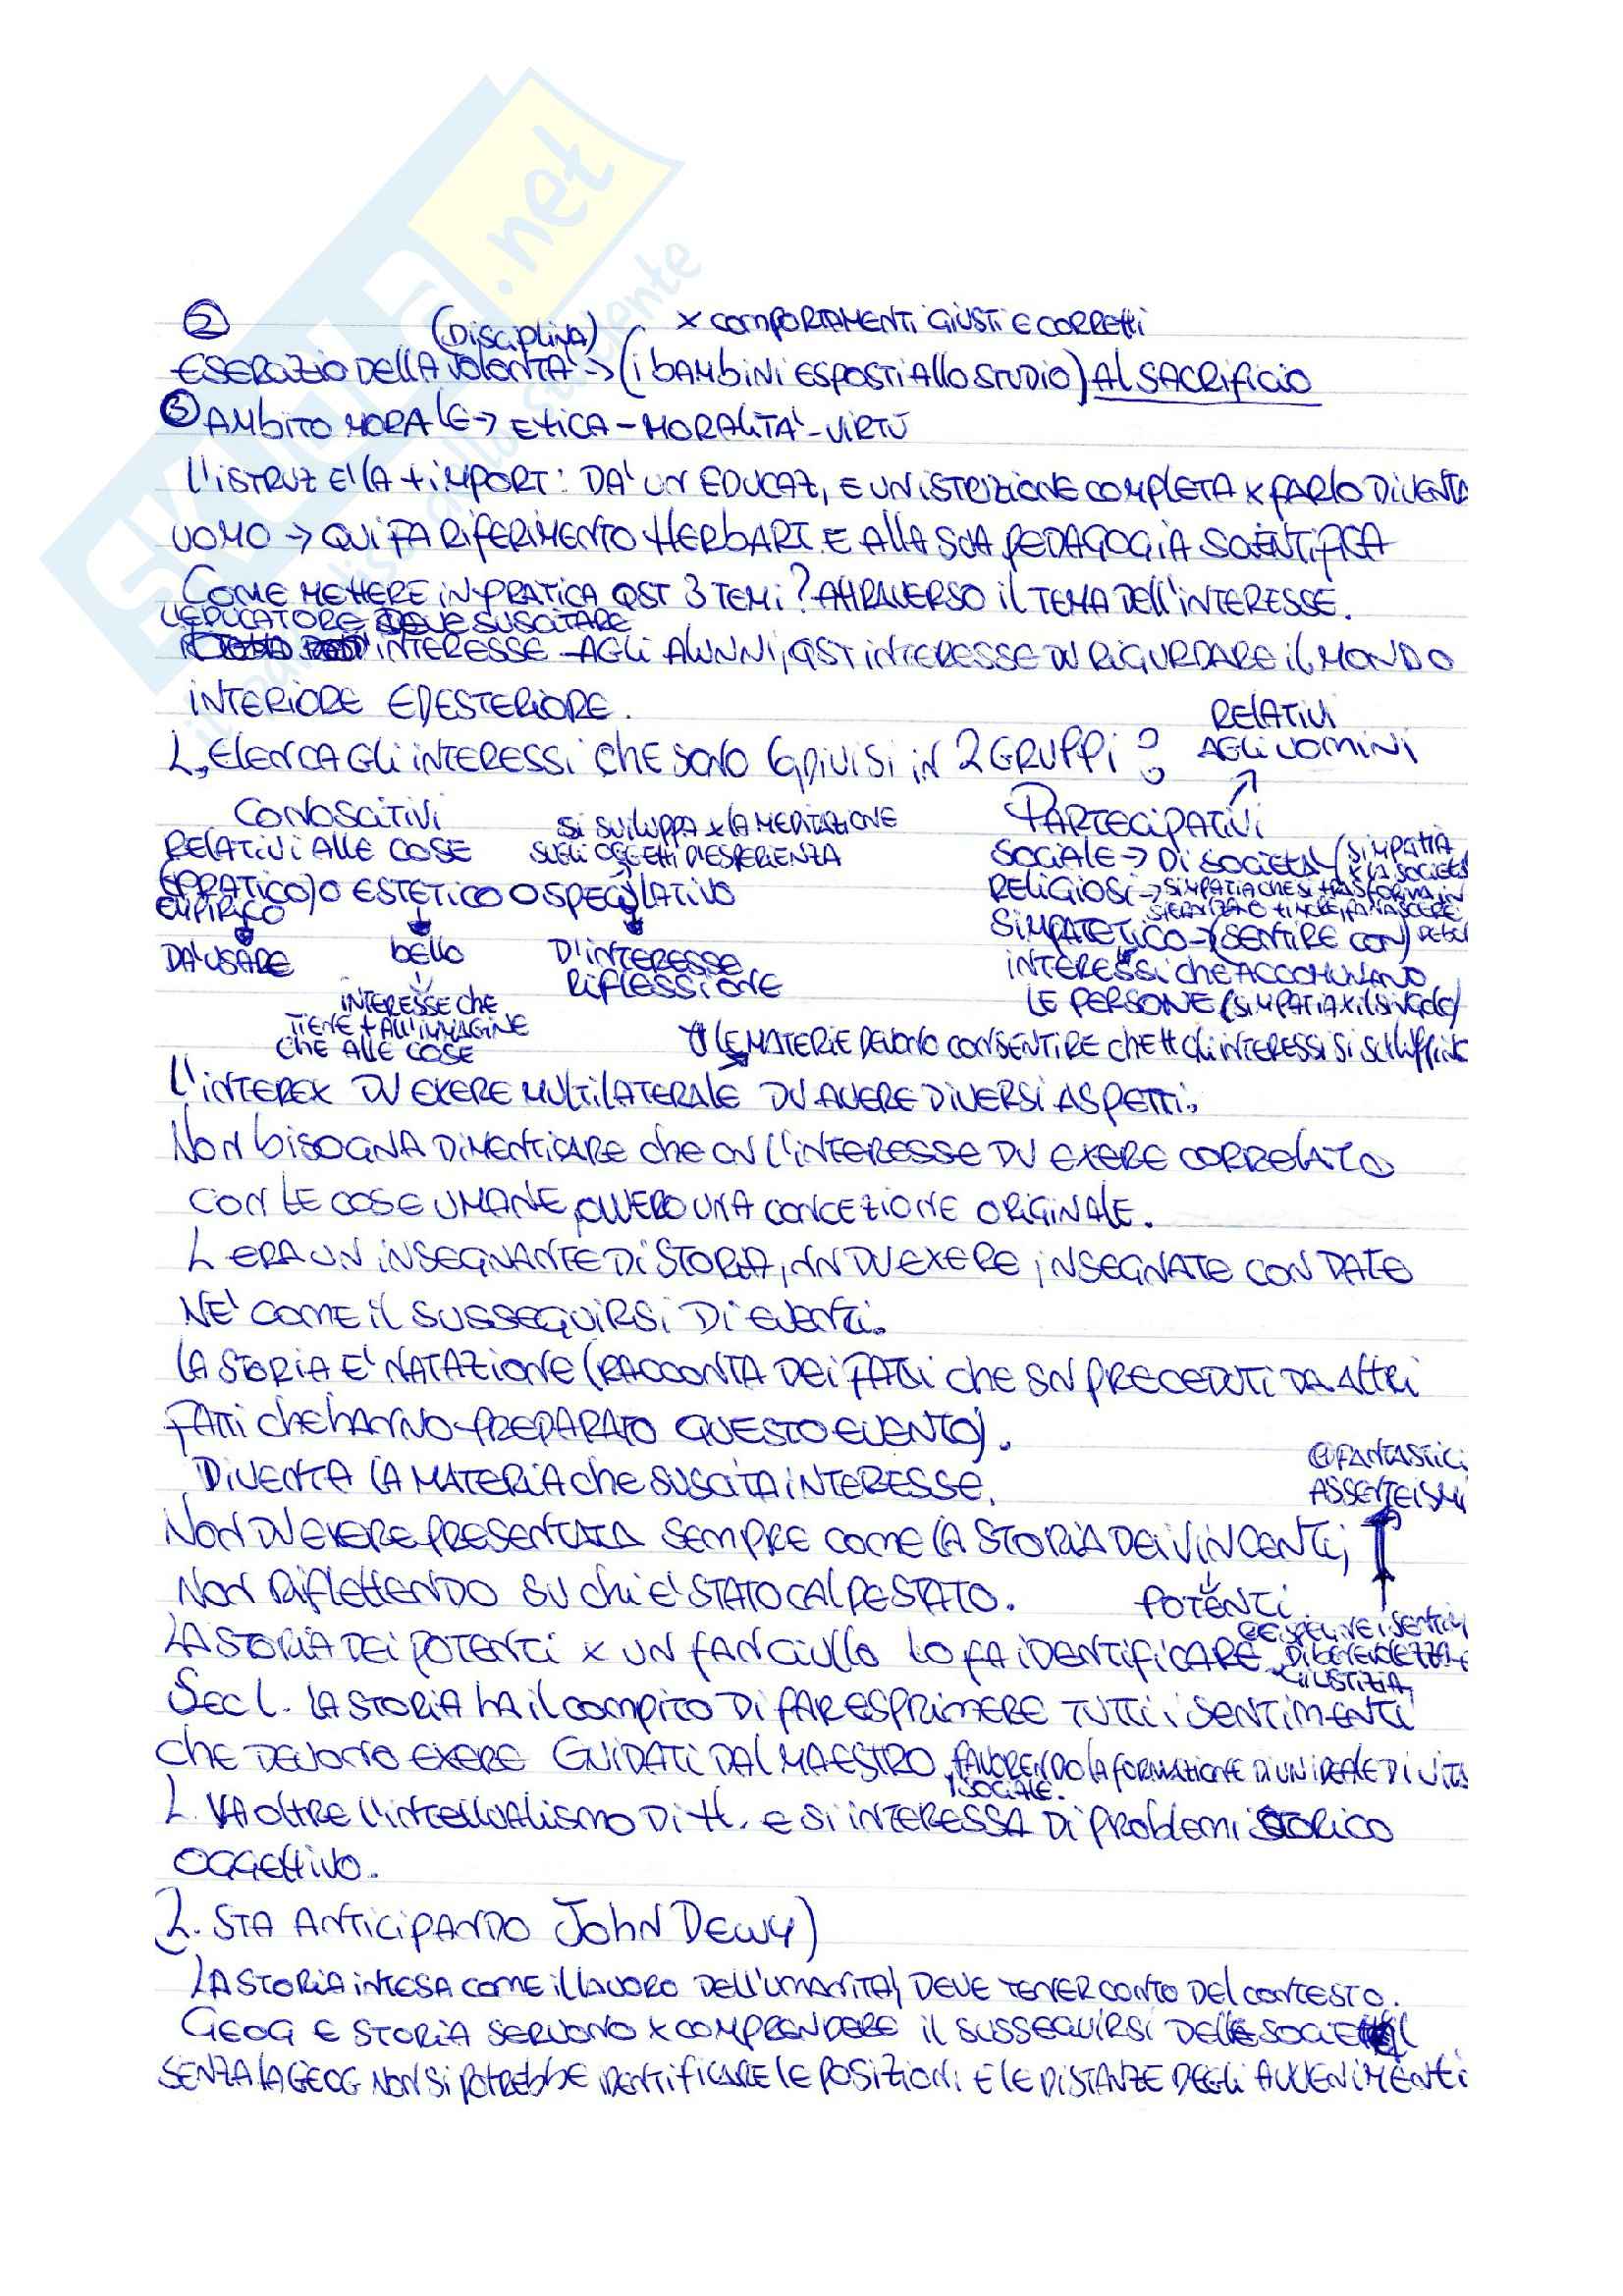 SKUOLA.net
②
(DISCIPLINA) x COMPORTAMENTI GIUSTI E CORRETTI
ESERCIZIO DELLA VOLONTÀ -> (I BAMBINI ESPOSTI ALLO STUDIO) AL SACRIFICIO
③ AMBITO MORALE -> ETICA - MORALITÀ - VIRTÙ
L'ISTRUZ E' LA + IMPORT: DA' UN EDUCAZ, E UN ISTRUZIONE COMPLETA x FARLO DIVENTA
UOMO -> QUI FA RIFERIMENTO HERBART E ALLA SUA PEDAGOGIA SCIENTIFICA
COME METTERE IN PRATICA QST 3 TEMI? ATTRAVERSO IL TEMA DELL'INTERESSE.
L'EDUCATORE DEVE SUSCITARE
INTERESSE AGLI ALUNNI, QST INTERESSE DV RIGURDARE IL MONDO
INTERIORE ED ESTERIORE.
L, ELENCA GLI INTERESSI CHE SONO 6 DIVISI IN 2 GRUPPI:
RELATIVI
AGLI UOMINI
CONOSCITIVI
RELATIVI ALLE COSE
SI SVILUPPA x LA MEDITAZIONE
SUGLI OGGETTI D'ESPERIENZA
(PRATICO) O ESTETICO O SPECULATIVO
EMPIRICO
DA USARE
BELLO
D'INTERESSE
RIFLESSIONE
INTERESSE CHE
TIENE + ALL'IMMAGINE
CHE ALLE COSE
PARTECIPATIVI
SOCIALE -> DI SOCIETÀ (SIMPATIA
x LA SOCIETÀ
RELIGIOSI -> SIMPATIA CHE SI TRASFORMA IN
SIMPATETICO -> (SENTIRE CON)
INTERESSI CHE ACCOMUNANO
LE PERSONE (SIMPATIA x IL SINGOLO)
LE MATERIE DEVONO CONSENTIRE CHE tt GLI INTERESSI SI SVILUPPINO
L'INTEREX DV EXERE MULTILATERALE DV AVERE DIVERSI ASPETTI.
NON BISOGNA DIMENTICARE CHE L'INTERESSE DV EXERE CORRELATO
CON LE COSE UMANE, OVVERO UNA CONCEZIONE ORIGINALE.
L ERA UN INSEGNANTE DI STORIA, NN DV EXERE INSEGNATE CON DATE
NE' COME IL SUSSEGUIRSI DI EVENTI.
LA STORIA E' NATAZIONE (RACCONTA DEI FATTI CHE SN PRECEDUTI DA ALTRI
FATTI CHE HANNO PREPARATO QUESTO EVENTO).
DIVENTA LA MATERIA CHE SUSCITA INTERESSE.
FANTASTICI
NON DV EXERE PRESENTATA SEMPRE COME LA STORIA DEI VINCENTI,
NON RIFLETTENDO SU CHI E' STATO CALPESTATO.
POTENTI
LA STORIA DEI POTENTI x UN FANCIULLO LO FA IDENTIFICARE
GIUSTIZIA
SEC L. LA STORIA HA IL COMPITO DI FAR ESPRIMERE TUTTI I SENTIMENTI
CHE DEVONO EXERE GUIDATI DAL MAESTRO, FAVORENDO LA FORMAZIONE DI UN IDEALE DI VITA
SOCIALE.
L. VA OLTRE L'INTELLUALISMO DI H. E SI INTERESSA DI PROBLEMI STORICO
OGGETTIVO.
L. STA ANTICIPANDO JOHN DEWY)
LA STORIA INTESA COME IL LAVORO DELL'UMANITÀ, DEVE TENER CONTO DEL CONTESTO.
GEOG E STORIA SERVONO x COMPRENDERE IL SUSSEGUIRSI DELLE SOCIETÀ
SENZA LA GEOG NON SI POTREBBE IDENTIFICARE LE POSIZIONI E LE DISTANZE DEGLI AVVENIMENTI